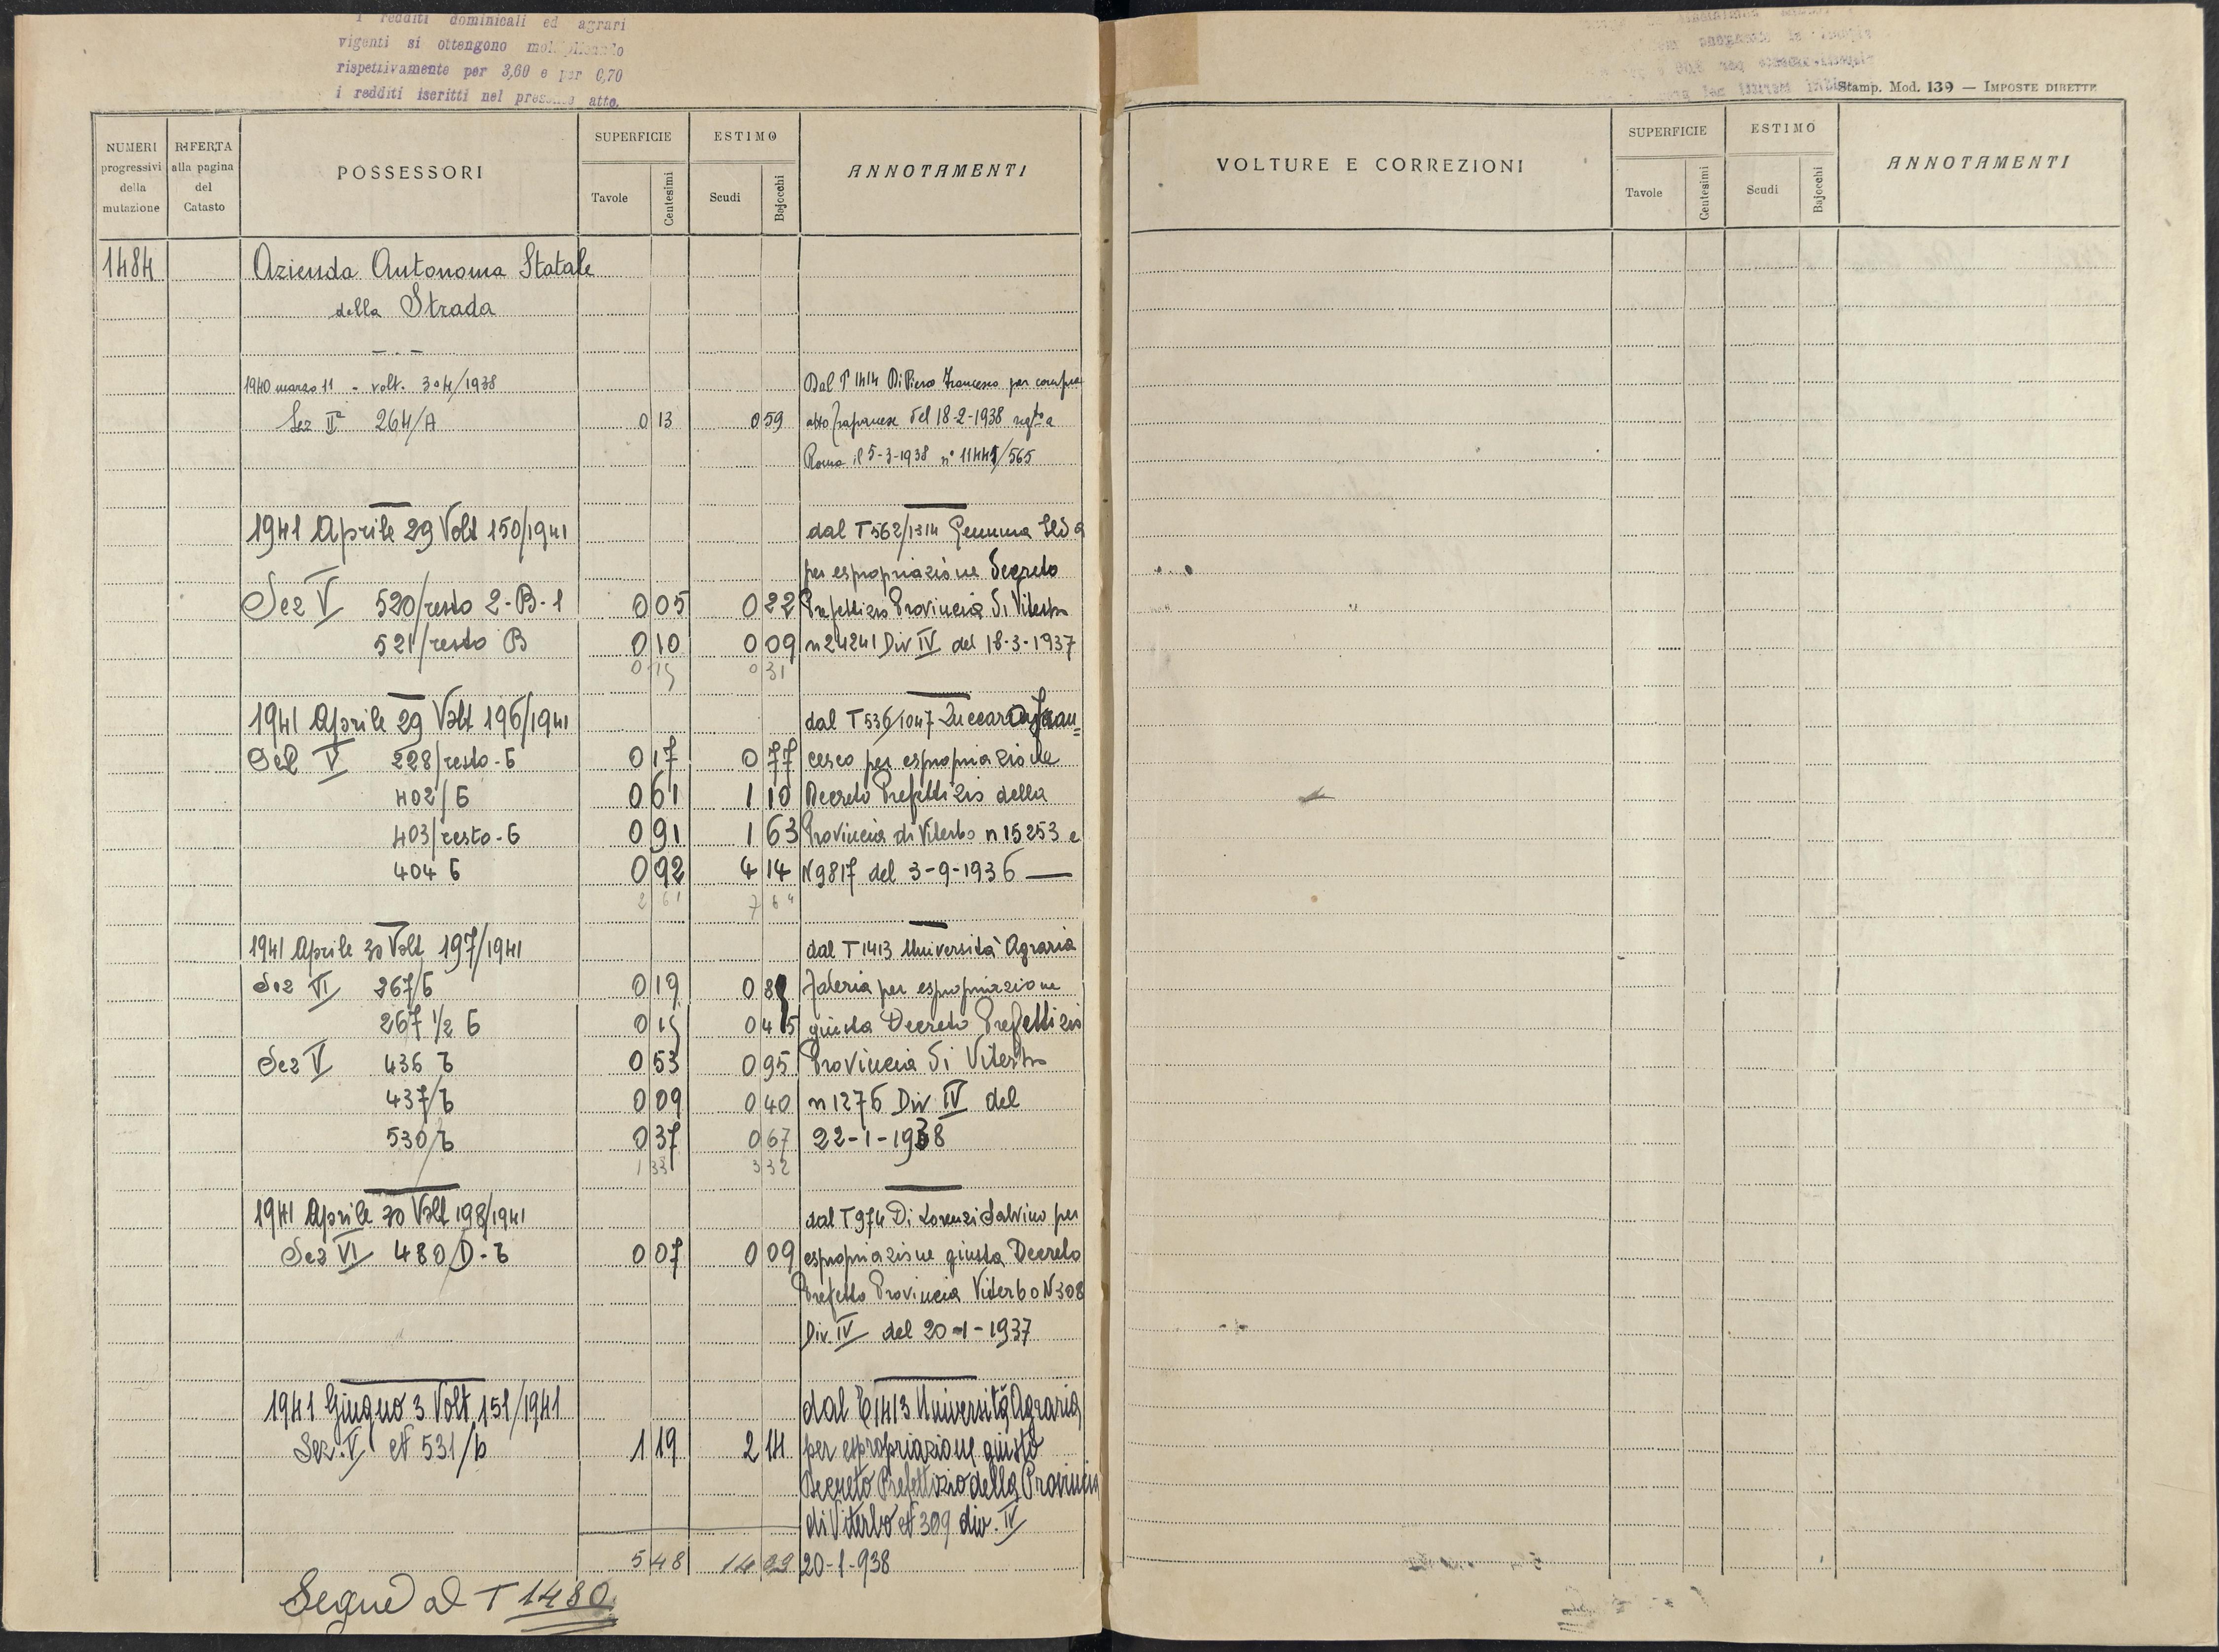 i redditi dominicali ed agrari
vigenti si ottengono moltiplicando
rispettivamente per 3,60 e per 0,70
i redditi iscritti nel presente atto.
Stamp. Mod. 139 — IMPOSTE DIRETTE
NUMERI progressivi della mutazione
RIFERTA alla pagina del Catasto
POSSESSORI
SUPERFICIE
Tavole Centesimi
ESTIMO
Scudi Bajocchi
ANNOTAMENTI
VOLTURE E CORREZIONI
SUPERFICIE
Tavole Centesimi
ESTIMO
Scudi Bajocchi
ANNOTAMENTI
1484 Azienda Autonoma Statale
della Strada
1940 marzo 11 - volt. 304/1938 Dal T 1414 Di Piero Francesco per compra
Sez IIa 264/A 0 13 0 59 atto del 18-2-1938 regto a
Roma il 5-3-1938 n° /565
1941 Aprile 29 Volt 150/1941 dal T 562/1314 Gemma
per espropriazione Decreto
Sez V 520/resto 2-B-1 0 05 0 22 Prefettizio Provincia di Viterbo
521/resto B 0 10 0 09 n 24241 Div IV del 18-3-1937
0 15 0 31
1941 Aprile 29 Volt 196/1941 dal T 536/1047 Fran=
Sez V 228/resto-b 0 17 0 77 cesco per espropriazione
402/b 0 61 1 10 Decreto Prefettizio della
403/resto-b 0 91 1 63 Provincia di Viterbo n 15253 e
404 b 0 92 4 14 N 9817 del 3-9-1936 —
2 61 7 64
1941 Aprile 30 Volt 197/1941 dal T 1413 Università Agraria
Sez VI 267/b 0 19 0 8 Faleria per espropriazione
267 1/2 b 0 15 0 45 giusta Decreto Prefettizio
Sez V 436 b 0 53 0 95 Provincia di Viterbo
437/b 0 09 0 40 n 1276 Div IV del
530/b 0 37 0 67 22-1-1938
1 33 3 32
1941 Aprile 30 Volt 198/1941 dal T 974 Di Lorenzi Salvino per
Sez VI 480 D-b 0 07 0 09 espropriazione giusta Decreto
Prefetto Provincia Viterbo N 308
Div. IV del 20-1-1937
1941 Giugno 3 Volt. 151/1941 dal T 1413 Università Agraria
Sez. V N 531/b 1 19 2 14 per espropriazione giusto
Decreto Prefettizio della Provincia
di Viterbo N 309 div. IV
5 48 14 09 20-1-938
Segue al T 1480